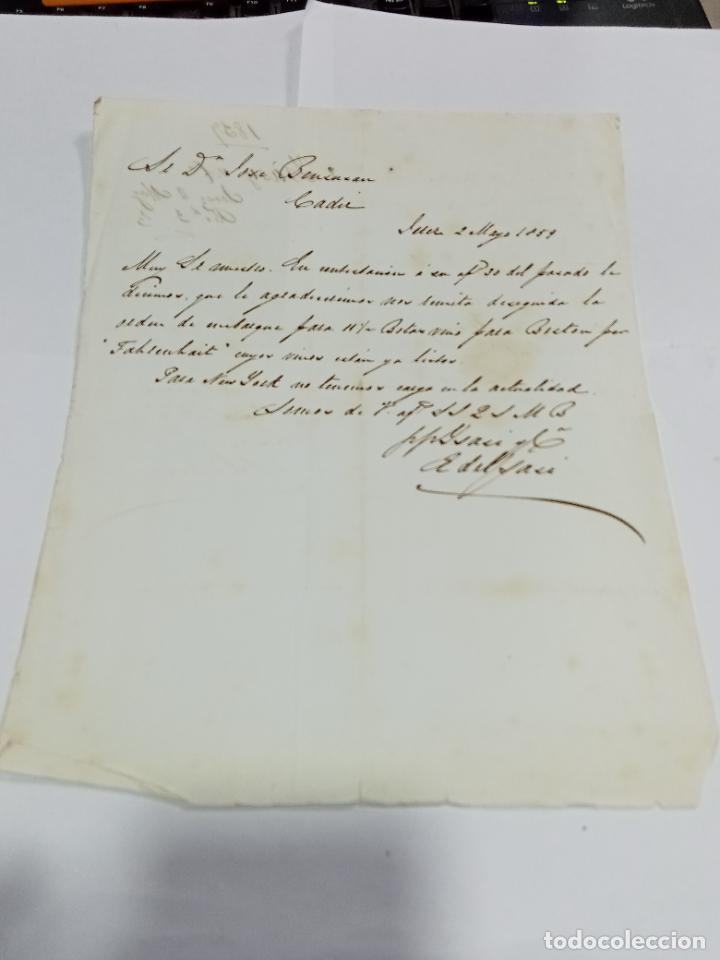 Sr Dn José Bensusan
Cadiz
Jerez 2 Mayo 1859
Muy Sr nuestro. En contestacion á su af 30 del pasado le
decimos, que le agradeceriamos nos remita deseguida la
orden de embarque para 11 1/2 Botas vino para Boston por
"Fahrenhait" cuyos vinos están ya listos.
Para New York no tenemos carga en la actualidad.
Somos de V. af SS Q S M B
pp Ysasi y Cª
R del Ysasi
1859
todocoleccion
Logitech